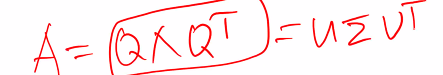 A = QΛQᵀ = UΣUᵀ